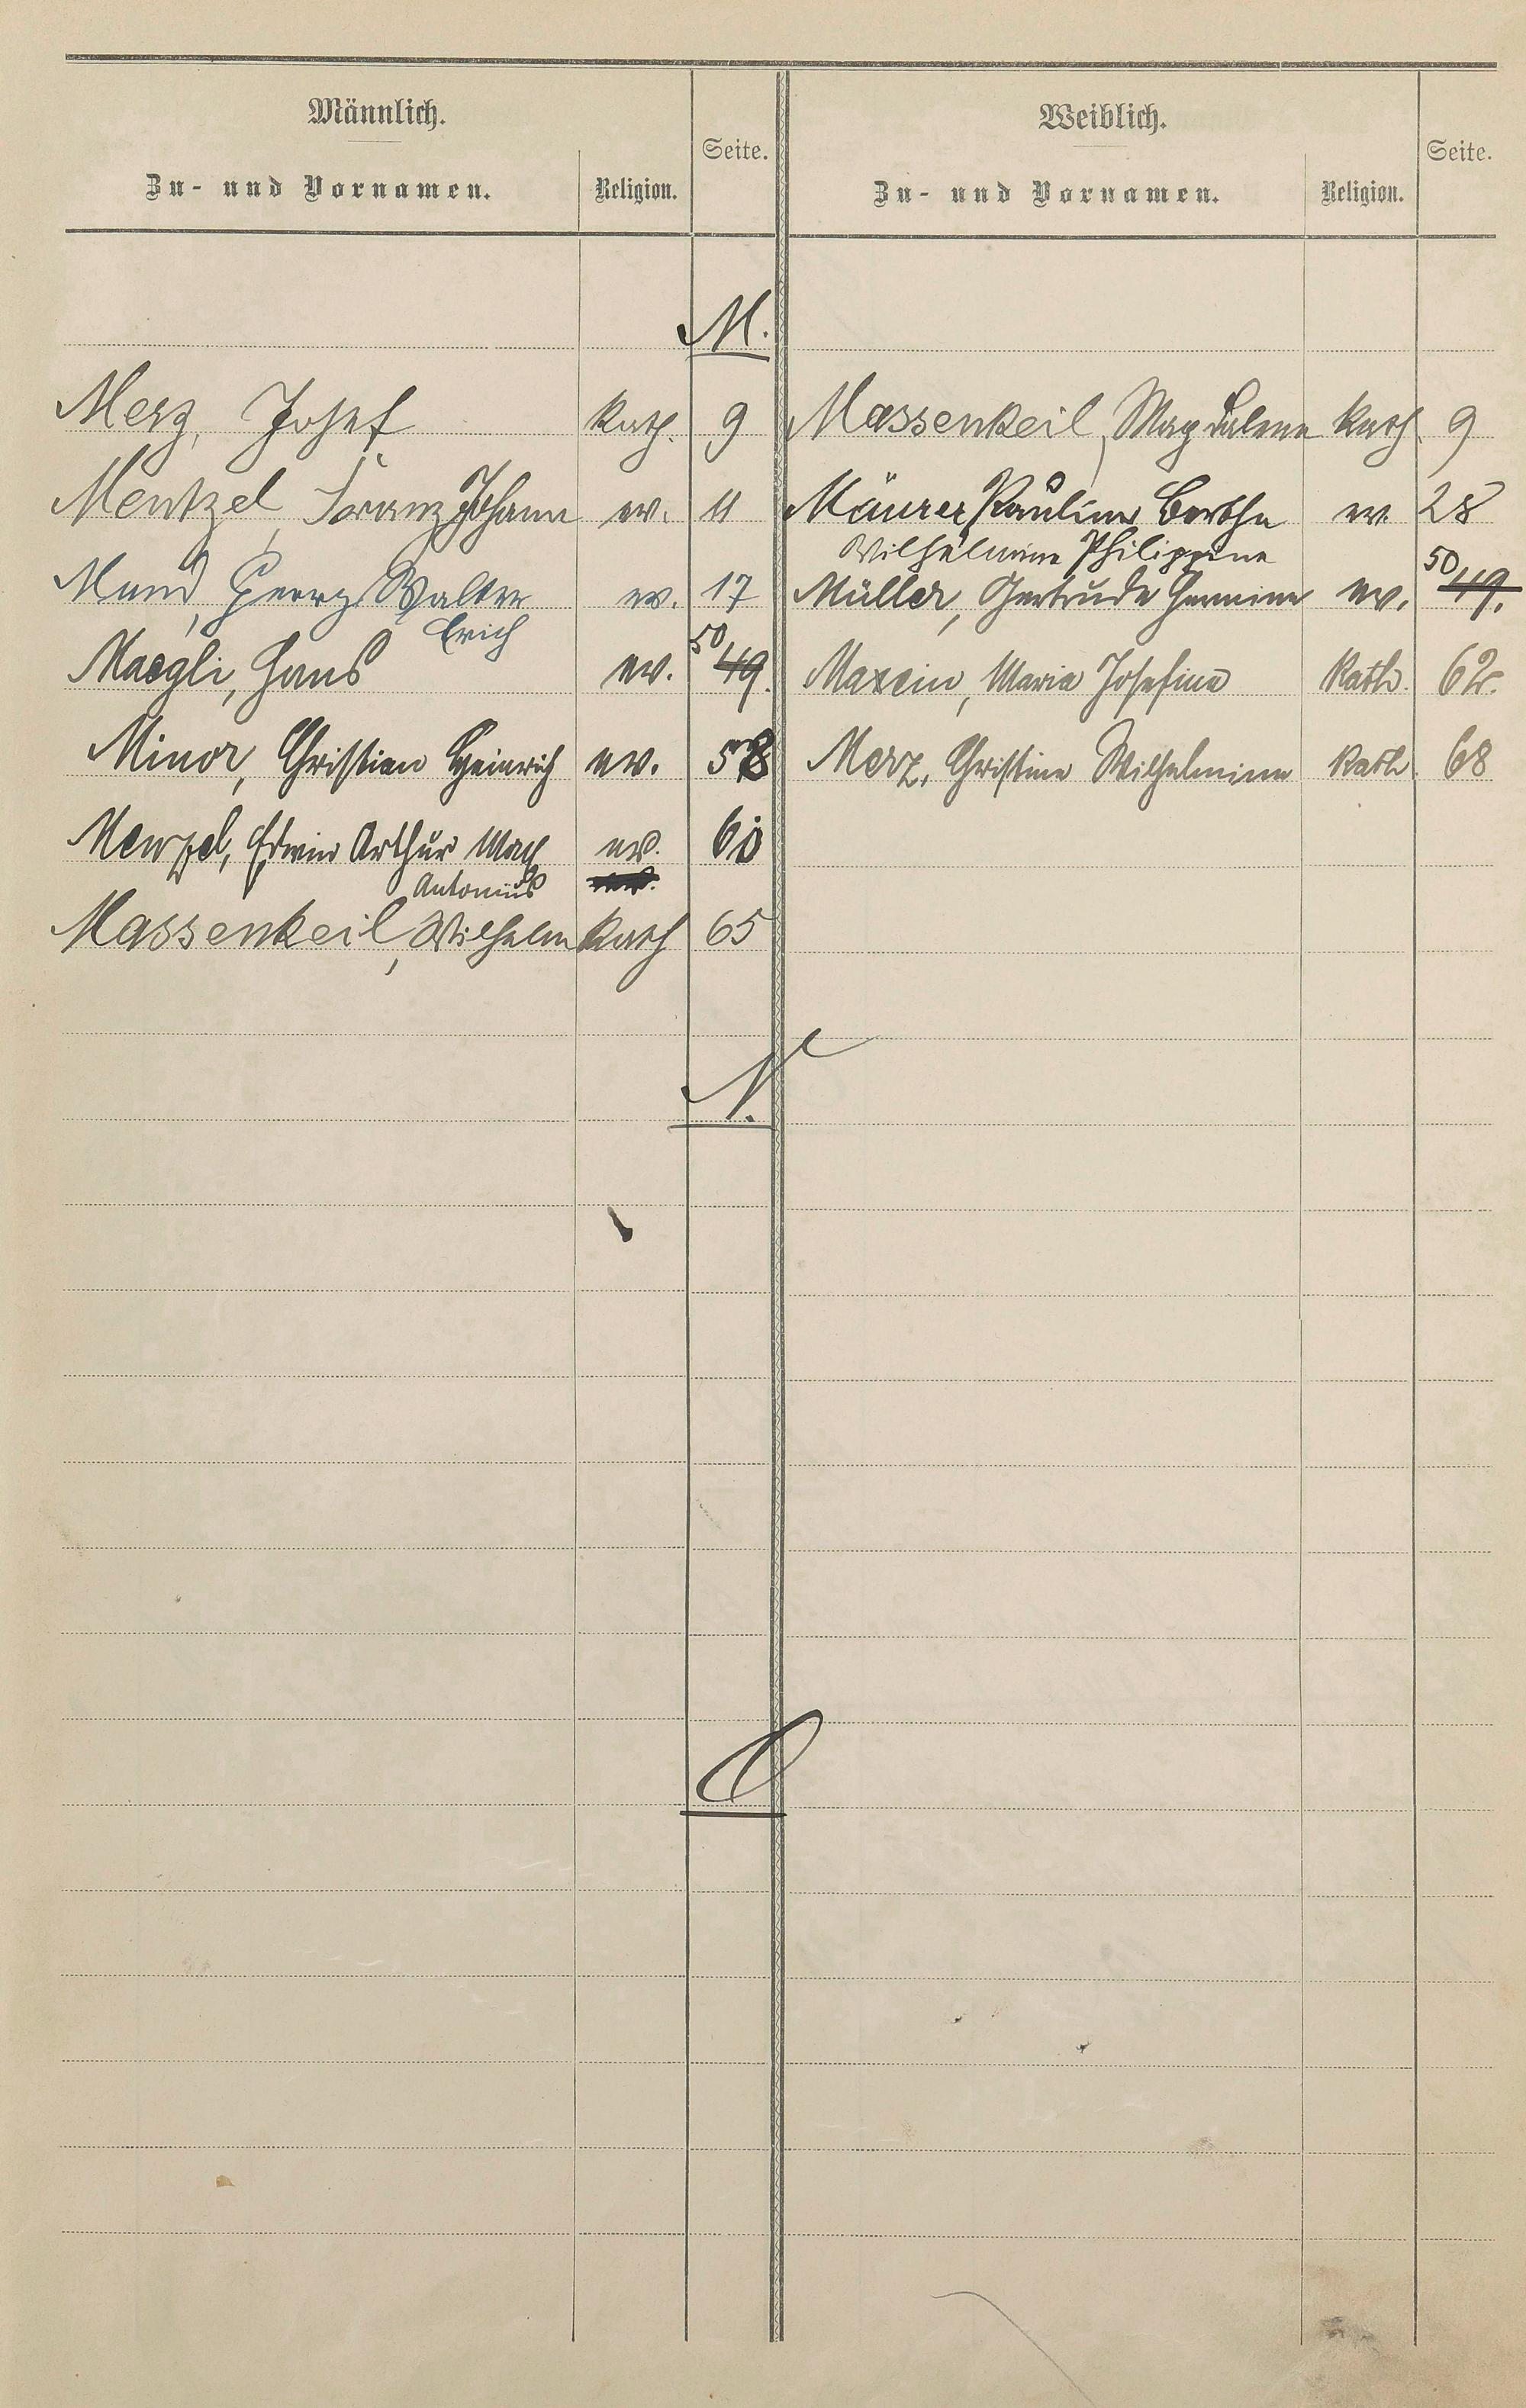 Männlich.
Zu- und Vornamen.
Religion.
Seite.
Weiblich.
Zu- und Vornamen.
Religion.
Seite.
M.
Merz, Josef kath. 9
Mentzel, Franz Johann ev. 11
Mund, Georg Walter ev. 17
Erich
Maegli, Hans ev. 50 49.
Minor, Christian Heinrich ev. 58
Menzel, Edwin Arthur Max ev. 60
Antonius
Massenkeil, Wilhelm kath 65
Massenkeil, Magdalena kath. 9
Mäurer Pauline Bertha ev. 28
Wilhelmine Philippine
Müller, Gertrude Hermine ev. 50 49.
Maxein, Maria Josefina kath. 62.
Merz, Christine Wilhelmine kath. 68
N.
O